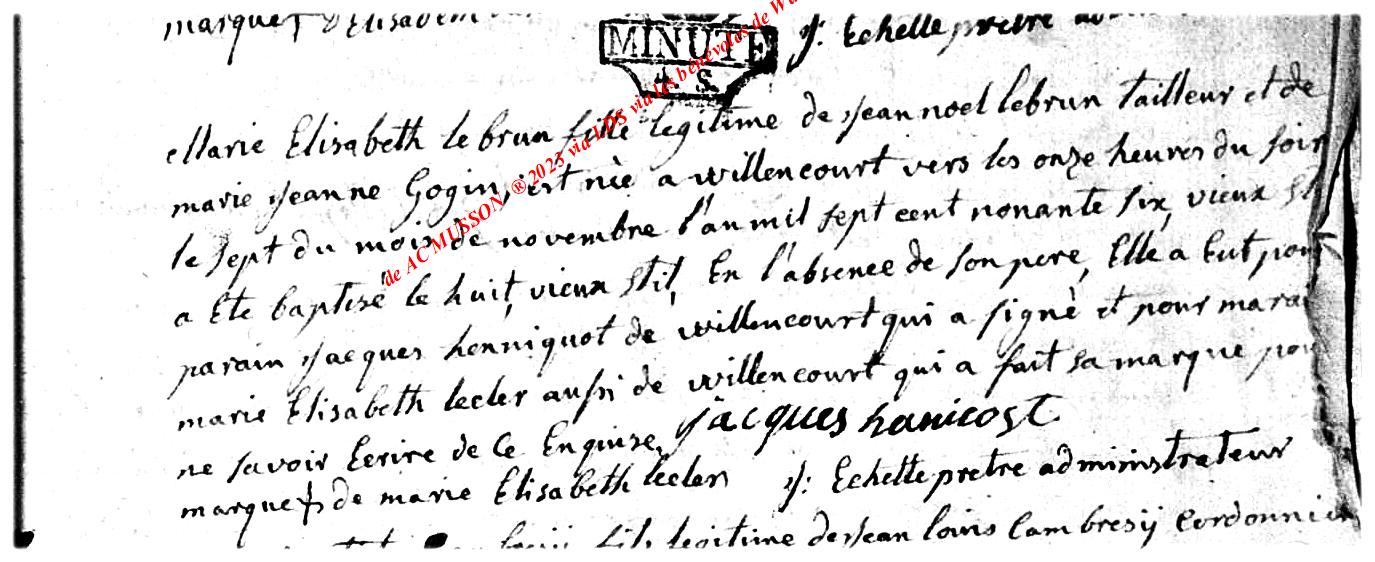 marque † d'Elisabeth
j: Echelle pretre
MINUTE
4 S
de ACMUSSON, ® 2023 via LDS via les bénévoles de
Marie Elisabeth le brun fille legitime de jean noel lebrun tailleur et de
marie jeanne Gogin, est née a willencourt vers les onze heures du soir
le sept du mois de novembre l'an mil sept cent nonante six, vieux stil
a Eté baptisé le huit, vieux stil, En l'absence de son pere, Elle a Eut pour
parain jacques henniquot de willencourt qui a signè et pour marai
marie Elisabeth lecler aussi de willencourt qui a fait sa marque pour
ne savoir Ecrire de Ce Enquise, jacques hanicost
marque † de marie Elisabeth lecler j: Echelle pretre administrateur
fils legitime de jean louis Cambresij Cordonnier